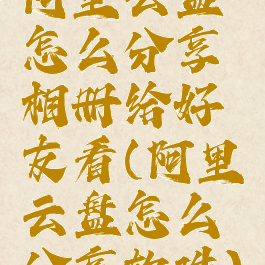 阿里云盘
怎么分享
相册给好
友看(阿里
云盘怎么
分享软件)